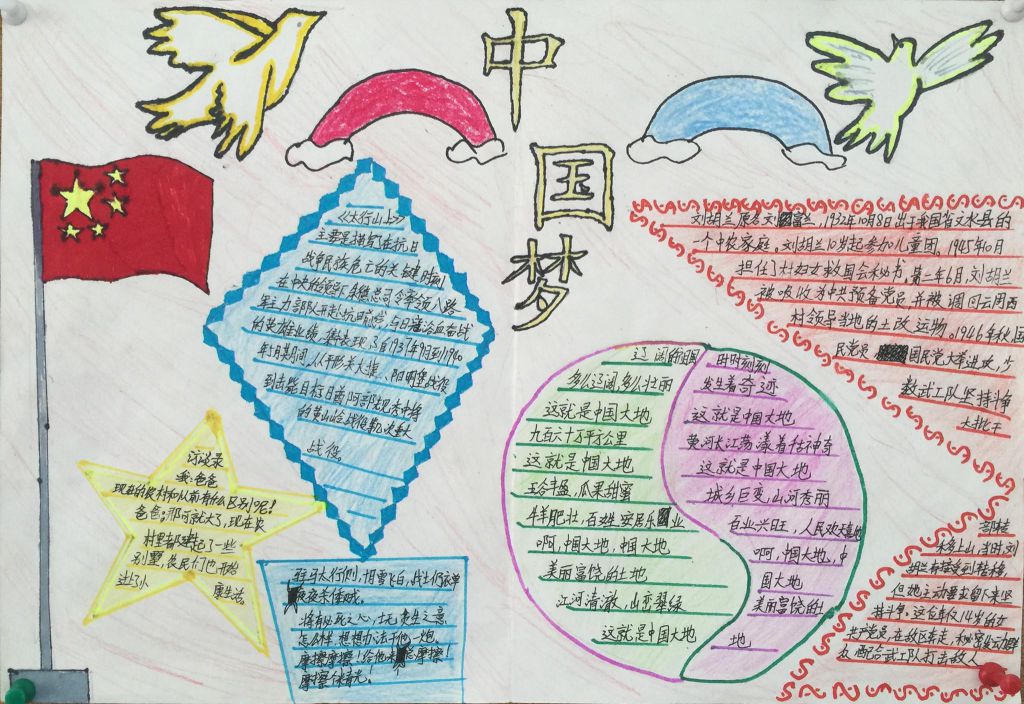 中
国
梦
《太行山上》
主要是描写在抗日
战争民族危亡的关键时刻
在中央的领导朱德总司令率领八路
军主力部队开赴抗日
的英雄业绩, 集中表现了自1937年9月到1940
年5月其期间, 从平形关大捷、阳明堡战役
到击毙日
的黄山岭战役等几次重大
战役。
访谈录
我:爸爸
现在的农村和以前有什么区别呢!
爸爸:那可就大了, 现在农
村里都建起了一些
别墅, 农民们也开始
进了小康生活。
驻马太行侧, 十月雪飞白, 战士仍衣单
夜夜杀倭贼。
将有必死之心, 士无贪生之意
怎么样 想想办法干他一炮.
摩擦摩擦!给他来个摩擦!
辽阔的眼
多么辽阔,多么壮丽
这就是中国大地
九百六十万平方公里
这就是中国大地
五谷丰盈,瓜果甜蜜
牛羊肥壮,百姓安居乐业
啊,中国大地,中国大地
美丽富饶的土地
江河清澈,山峦翠绿
这就是中国大地
时时刻刻
发生着奇迹
这就是中国大地
黄河长江荡漾着估神奇
这就是中国大地
城乡巨变,山河秀丽
百业兴旺,人民欢天喜地
啊,中国大地,中
国大地
美丽富饶的土
地
刘胡兰原名刘富兰,1932年10月8日出于我国省文水县的
一个中农家庭。刘胡兰10岁起参加儿童团。1945年10月
担任了村妇女救国会秘书,第二年6月,刘胡兰
被吸收为中共预备党员并被调回云周西
村领导当地的土改运物。1946年秋,国
民党 国民党大军进攻,少
数武工队坚持斗争
大批干
部转
未多上山,当时,刘
胡兰有接受到转移,
但她主动要求留下来坚
持斗争。这位年仅14岁的女
共产党员,在敌区奔走,秘密发动群
众,配合武工队打击敌人